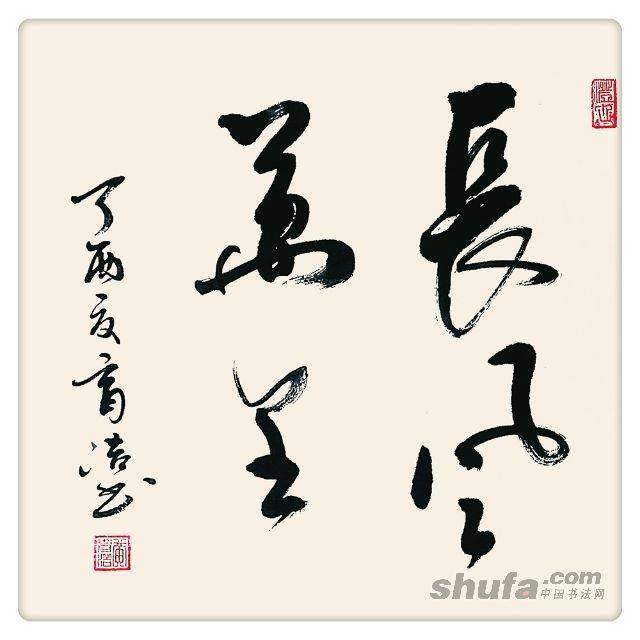 長風
萬里
丁酉夏育濤書
shufa.com
中国书法网